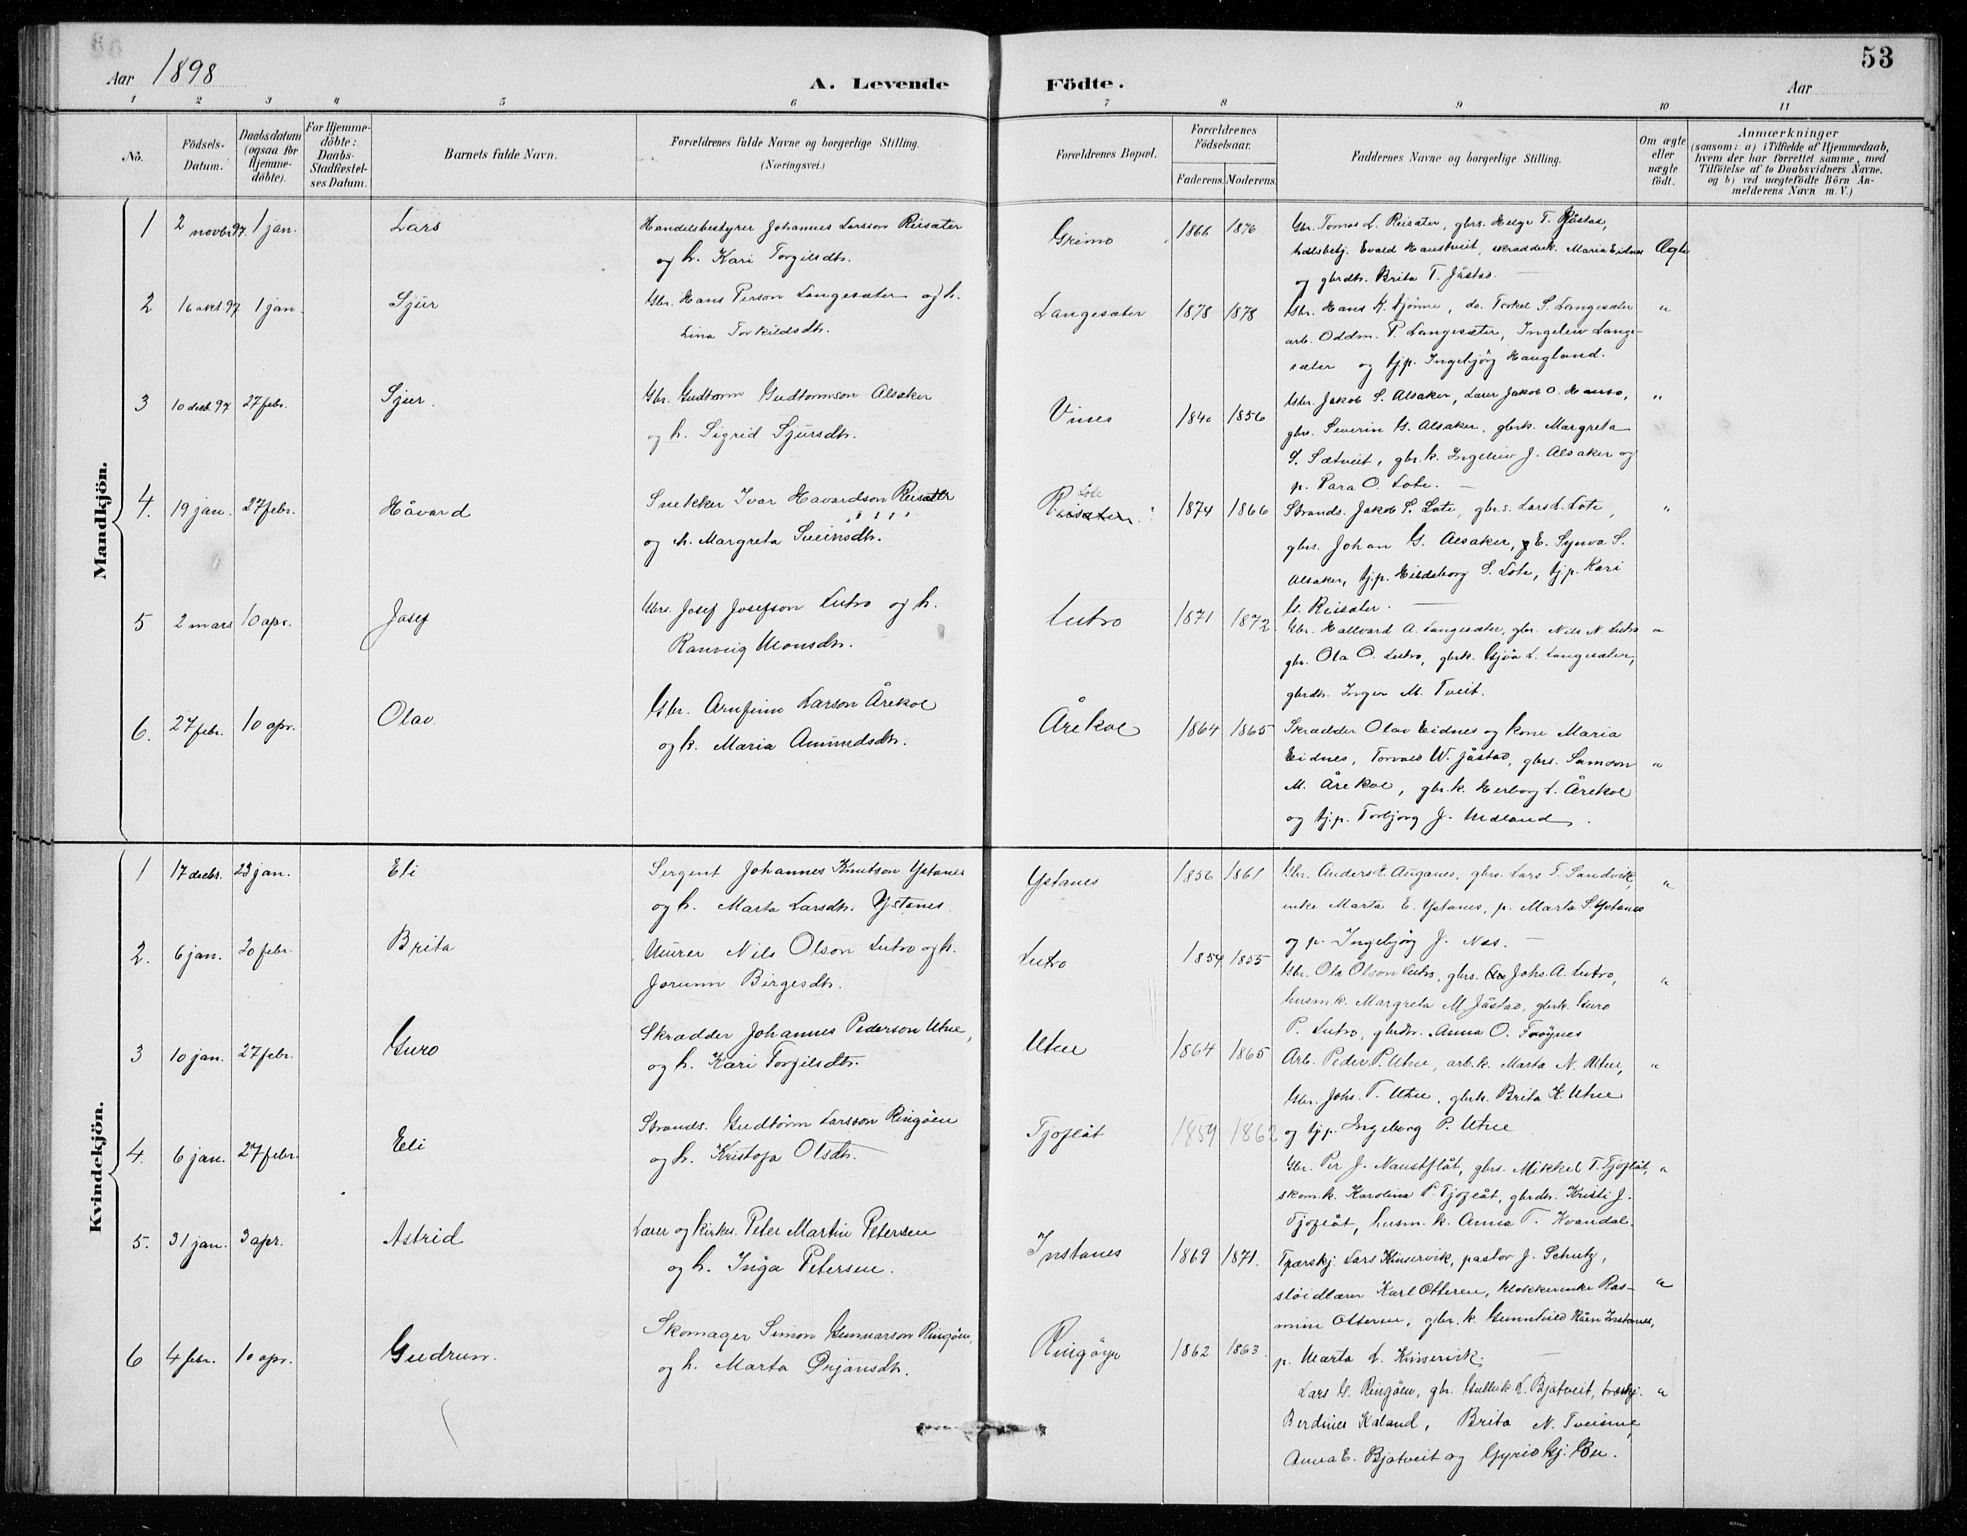 53
Aar 1898
A. Levende Födte.
Aar
1 2 3 4 5 6 7 8 9 10 11
No.
Födsels-Datum.
Daabsdatum (ogsaa for Hjemmedöbte).
For Hjemmedöbte: Daabs-Stadfestelses Datum.
Barnets fulde Navn.
Forældrenes fulde Navne og borgerlige Stilling.
(Næringsvei.)
Forældrenes Bopæl.
Forældrenes Födselsaar.
Faderens. Moderens.
Faddernes Navne og borgerlige Stilling.
Om ægte eller uægte födt.
Anmærkninger
(saasom: a) i Tilfælde af Hjemmedaab, hvem der har forrettet samme, med Tilföielse af to Daabsvidners Navne. og b) ved uægtefödte Börn Anmelderens Navn m. V.)
Mandkjön.
1 2 novbr 97. 1 jan. Lars Handelsbestyrer Johannes Larsson Reisæter og h. Kari Torgilsdtr. Grimo 1866 1876 Gbr. Tomas L. Reisæter, gbrs. Helge T. Jåstad,
Evald Haustveit, skradderk. Maria Eidnes Ægte
og gbrdtr. Brita T. Jåstad.
2 16 okt. 97 1 jan. Sjur Gbr. Hans Person Langesæter og h. Lina Torkildsdtr. Langesæter 1878 1878 Gbr. Hans K. Djönne, do. Torkel S. Langesæter "
arb. Oddm. P. Langesæter, Ingeleiv Lange-
sæter og tj.p. Ingebjörg Haugland.
3 10 decb. 97 27 febr. Sjur. Gbr. Gudtorm Gudtormson Alsaker og h. Sigrid Sjursdtr. Vines 1840 1856 Gbr. Jakob S. Alsaker, Lærer Jakob O. Hauso, "
gbrs. Severin G. Alsaker, gbrk. Margreta
S. Sætveit, gbr.k. Ingeleiv J. Alsaker og
p. Para O. Lote.
4. 19 jan. 27 febr. Håvard Snekker Ivar Havardson Reisæter og h. Margreta Sveinsdtr. Lote Reisæter. 1874 1866 Strands. Jakob S. Lote, gbrs. Lars L. Lote, "
gbrs. Johan G. Alsaker, E. Synva S.
Alsaker, tj.p. Hildeborg S. Lote, tj.p. Kari
H. Reisæter.
5 2 mars 10 apr. Josef Gbrs. Josef Josefson Lutro og h. Ranveig Monsdtr. Lutro 1871 1872 Gbr. Hallvard A. Langesæter, gbr. Nils N. Lutro "
gbr. Ola O. Lutro, gbrk. Gjöa L. Langesæter,
gbrdtr. Inger M. Tveit.
6. 27 febr. 10 apr. Olav. Gbr. Arnfinn Larson Årekol og h. Maria Amundsdtr. Årekol 1864 1865 Skradder Olav Eidnes og kone Maria
Eidnes, Torvald W. Jåstad, gbrs. Samson "
M. Årekol, gbr.k. Herborg L. Årekol
og tj.p. Torbjorg J. Midland.
Kvindekjön.
1 17 decbr. 23 jan. Eli Sergent Johannes Knutson Ystanes og h. Marta Larsdtr. Ystanes Ystanes 1856 1861 Gbr. Anders E. Auganes, gbrs. Lars T. Sandvik, "
enke Marta E. Ystanes, p. Marta S. Ystanes
og p. Ingebjörg J. Næs.
2. 6 jan. 20 febr. Brita Murer Nils Olson Lutro og h. Jorunn Birgesdtr. Lutro 1854 1855 Gbr. Ola Olson Lutro, gbrs. Johs. A. Lutro, "
husm.k. Margreta M. Jåstad, gbrk. Guro
P. Lutro, gbrdtr. Anna O. Fröynes
3 10 jan. 27 febr. Guro Skrædder Johannes Pederson Utne, og h. Kari Torgilsdtr. Utne 1864 1865 Arb. Peder P. Utne, arb.k. Marta N. Utne, "
Gbr. Johs. T. Utne, gbrk. Brita K. Utne
og tj.p. Ingeborg P. Utne
4. 6 jan. 27 febr. Eli Strands. Gudtorm Larsson Ringöen og h. Kristofa Olsdtr. Tjoflåt 1859 1862
Gbr. Per J. Naustflåt, gbrs. Mikkel T. Tjoflåt, "
skom.k. Karolina P. Tjoflåt, gbrdtr. Kristi J.
Tjoflåt, husm.k. Anna T. Kvandal.
5. 31 jan. 3 apr. Astrid Lærer og kirkes. Peter Martin Petersen og h. Inga Petersen. Instanes 1869 1871. Lars Kinservik, pastor J. Schutz,
slöidlærer Karl Ottersen, klokkerenke Ras- "
mine Ottersen, gbr.k. Gunnhild Håen Instanes,
p. Marta L. Kinservik.
6 4 febr. 10 apr. Gudrun. Skomager Simon Gunnarson Ringöen, og h. Marta Örjansdtr. Ringöyn 1862 1863.
Lars G. Ringöen, gbr. Gullik L. Bjotveit, "
Berdines Kaland, Brita N. Tveisme,
Anna E. Bjotveit og Gyrid Gj. Bu.